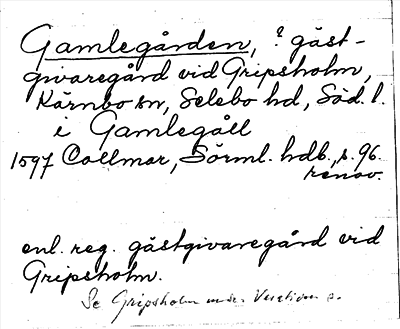 Gamlegården, ? gäst-
givaregård vid Gripsholm,
Kärnbo sn, Selebo hd, Söd. l.
i Gamlegåll
1597 Collmar, Sörml. hdb., s. 96.
renov.
enl. reg. gästgivaregård vid
Gripsholm.
Se Gripsholm